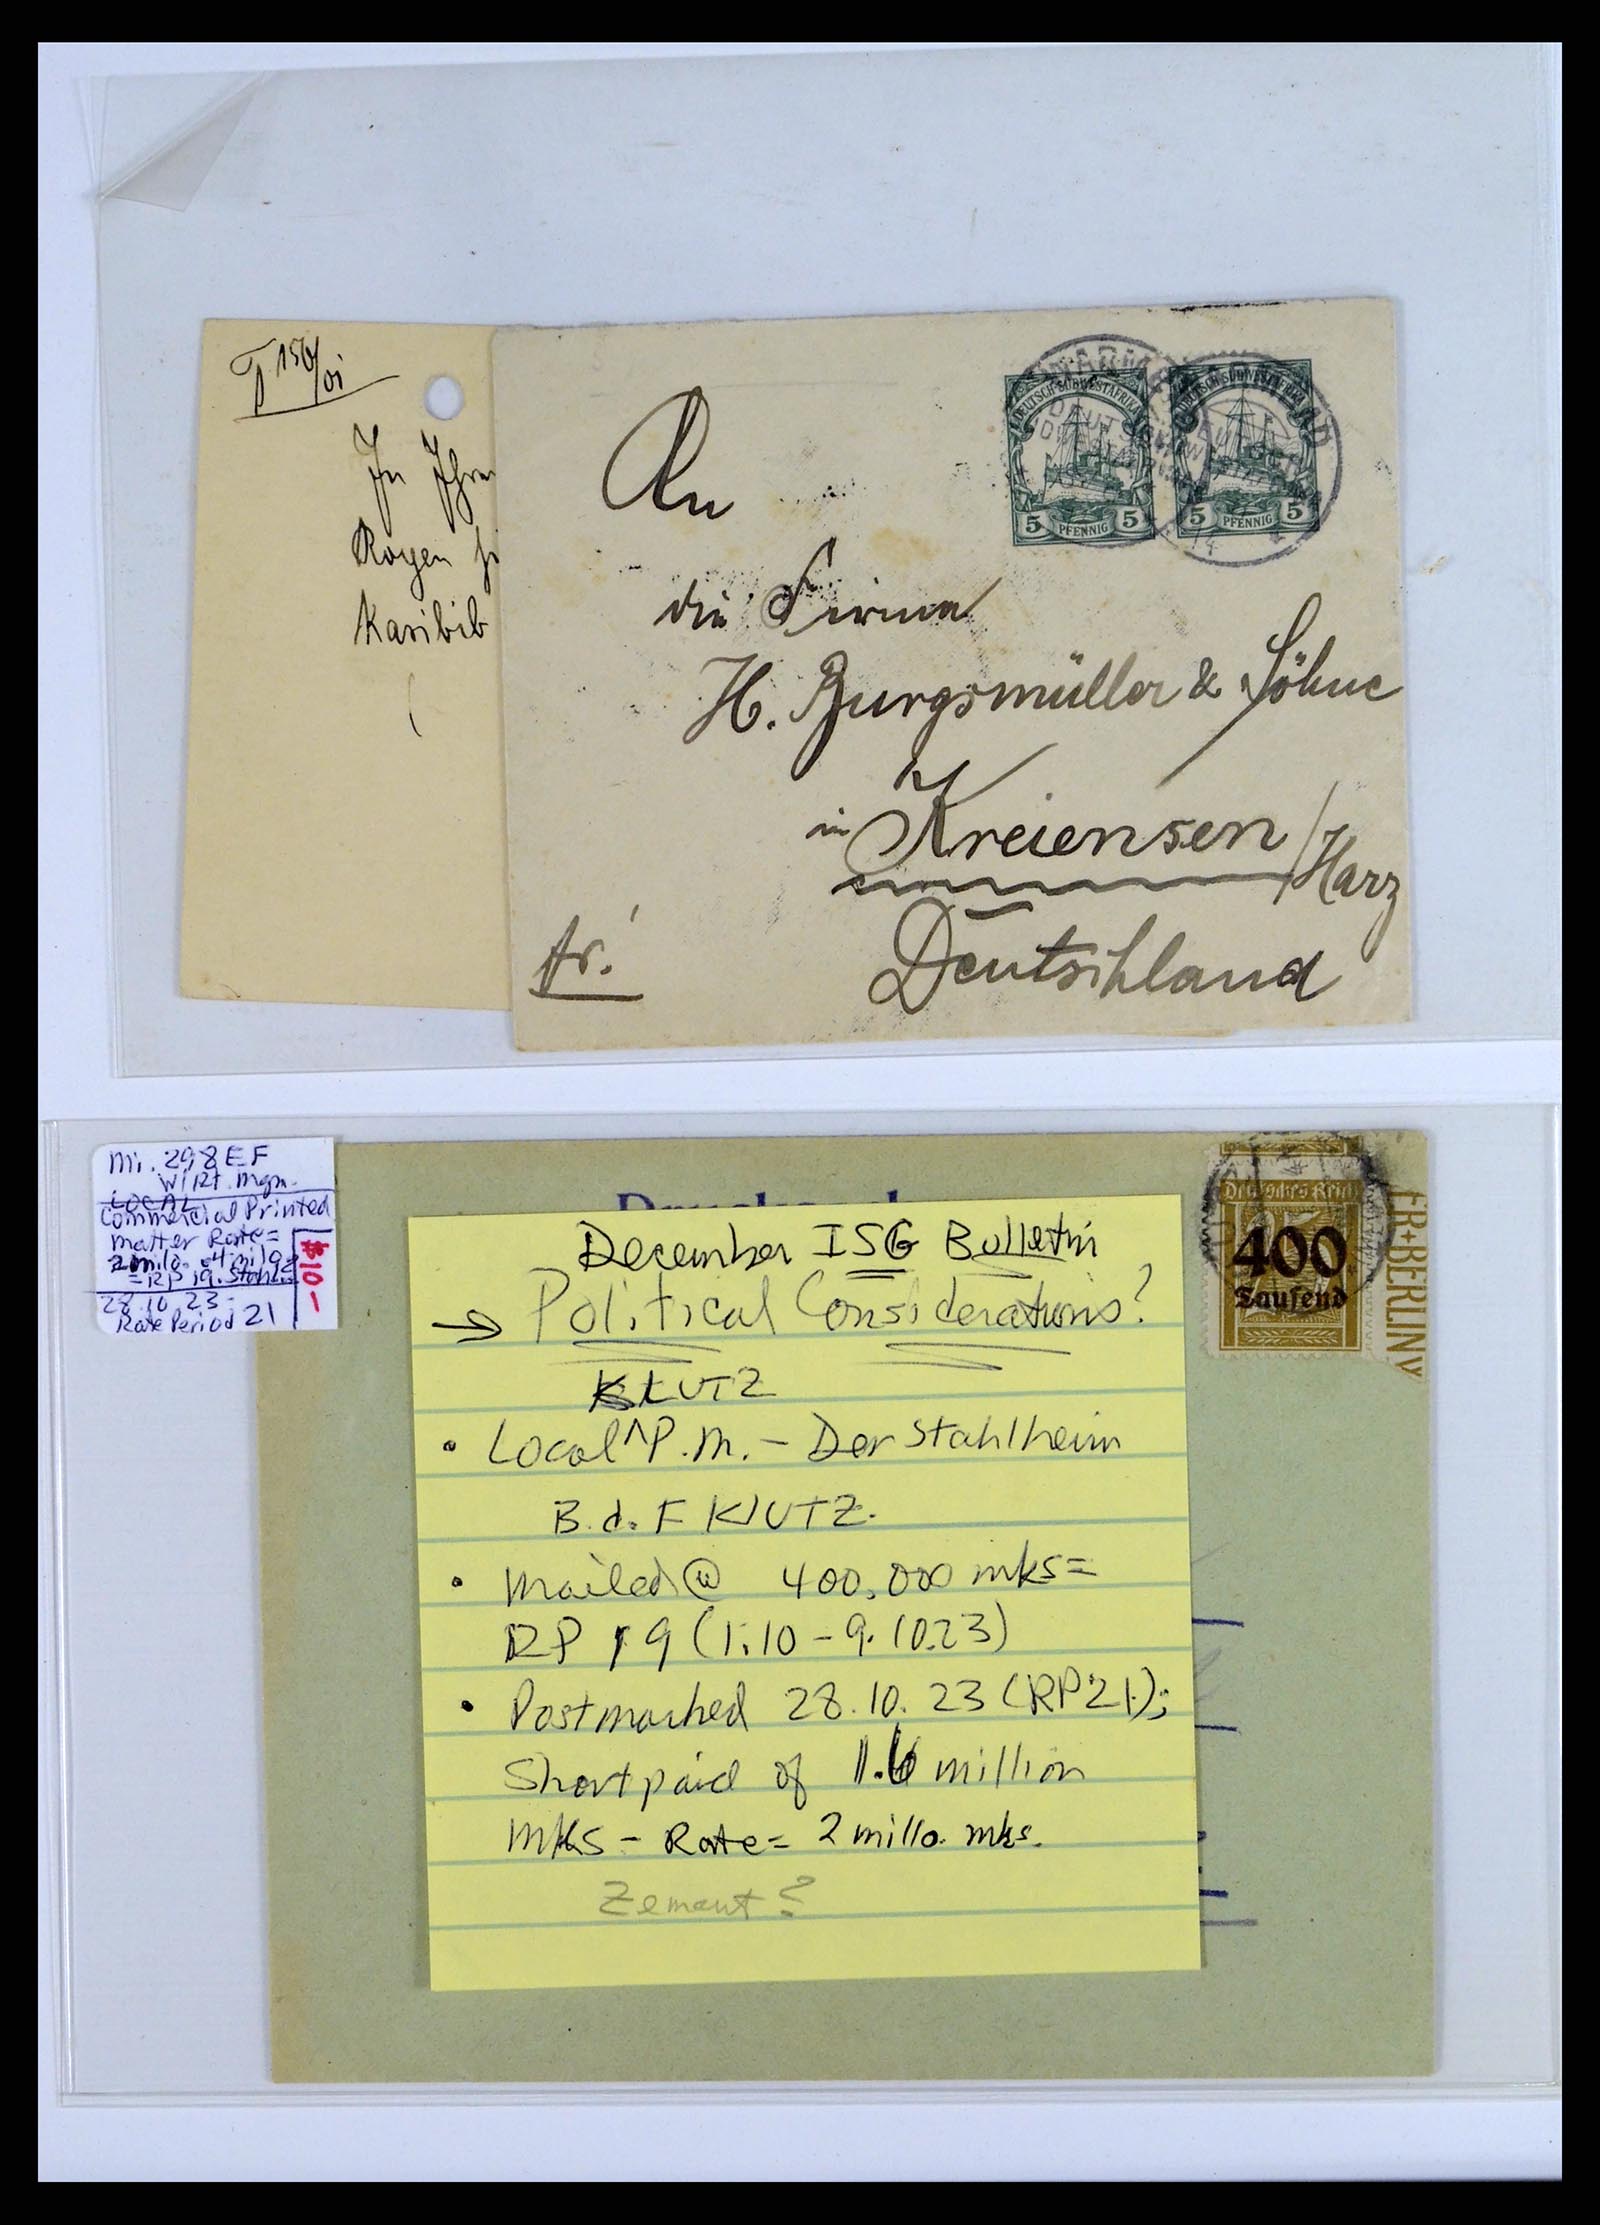 In Ihren
Karibib
DEUTSCH-SÜDWESTAFRIKA
5 PFENNIG 5
DEUTSCH-SÜDWESTAFRIKA
5 PFENNIG 5
An
die Firma
H. Burgsmüller & Söhne
in Kreiensen/Harz
Deutschland
Mi. 298 EF
W/Rt. Mgn.
LOCAL
Commercial Printed
Matter Rate =
28.10.23 -
Rate Period 21
$10-
Deutsches Reich
400
Tausend
ER+BERLIN
December ISG Bulletin
→ Political Considerations?
KLUTZ
• Local ^ P.M. - Der Stahlheim
B.d.F KLUTZ.
• Mailed @ 400,000 mks =
RP 19 (1.10 - 9.10.23)
• Postmarked 28.10.23 (RP 21);
Shortpaid of 1.6 million
mks - Rate = 2 millo. mks.
Zemaut?